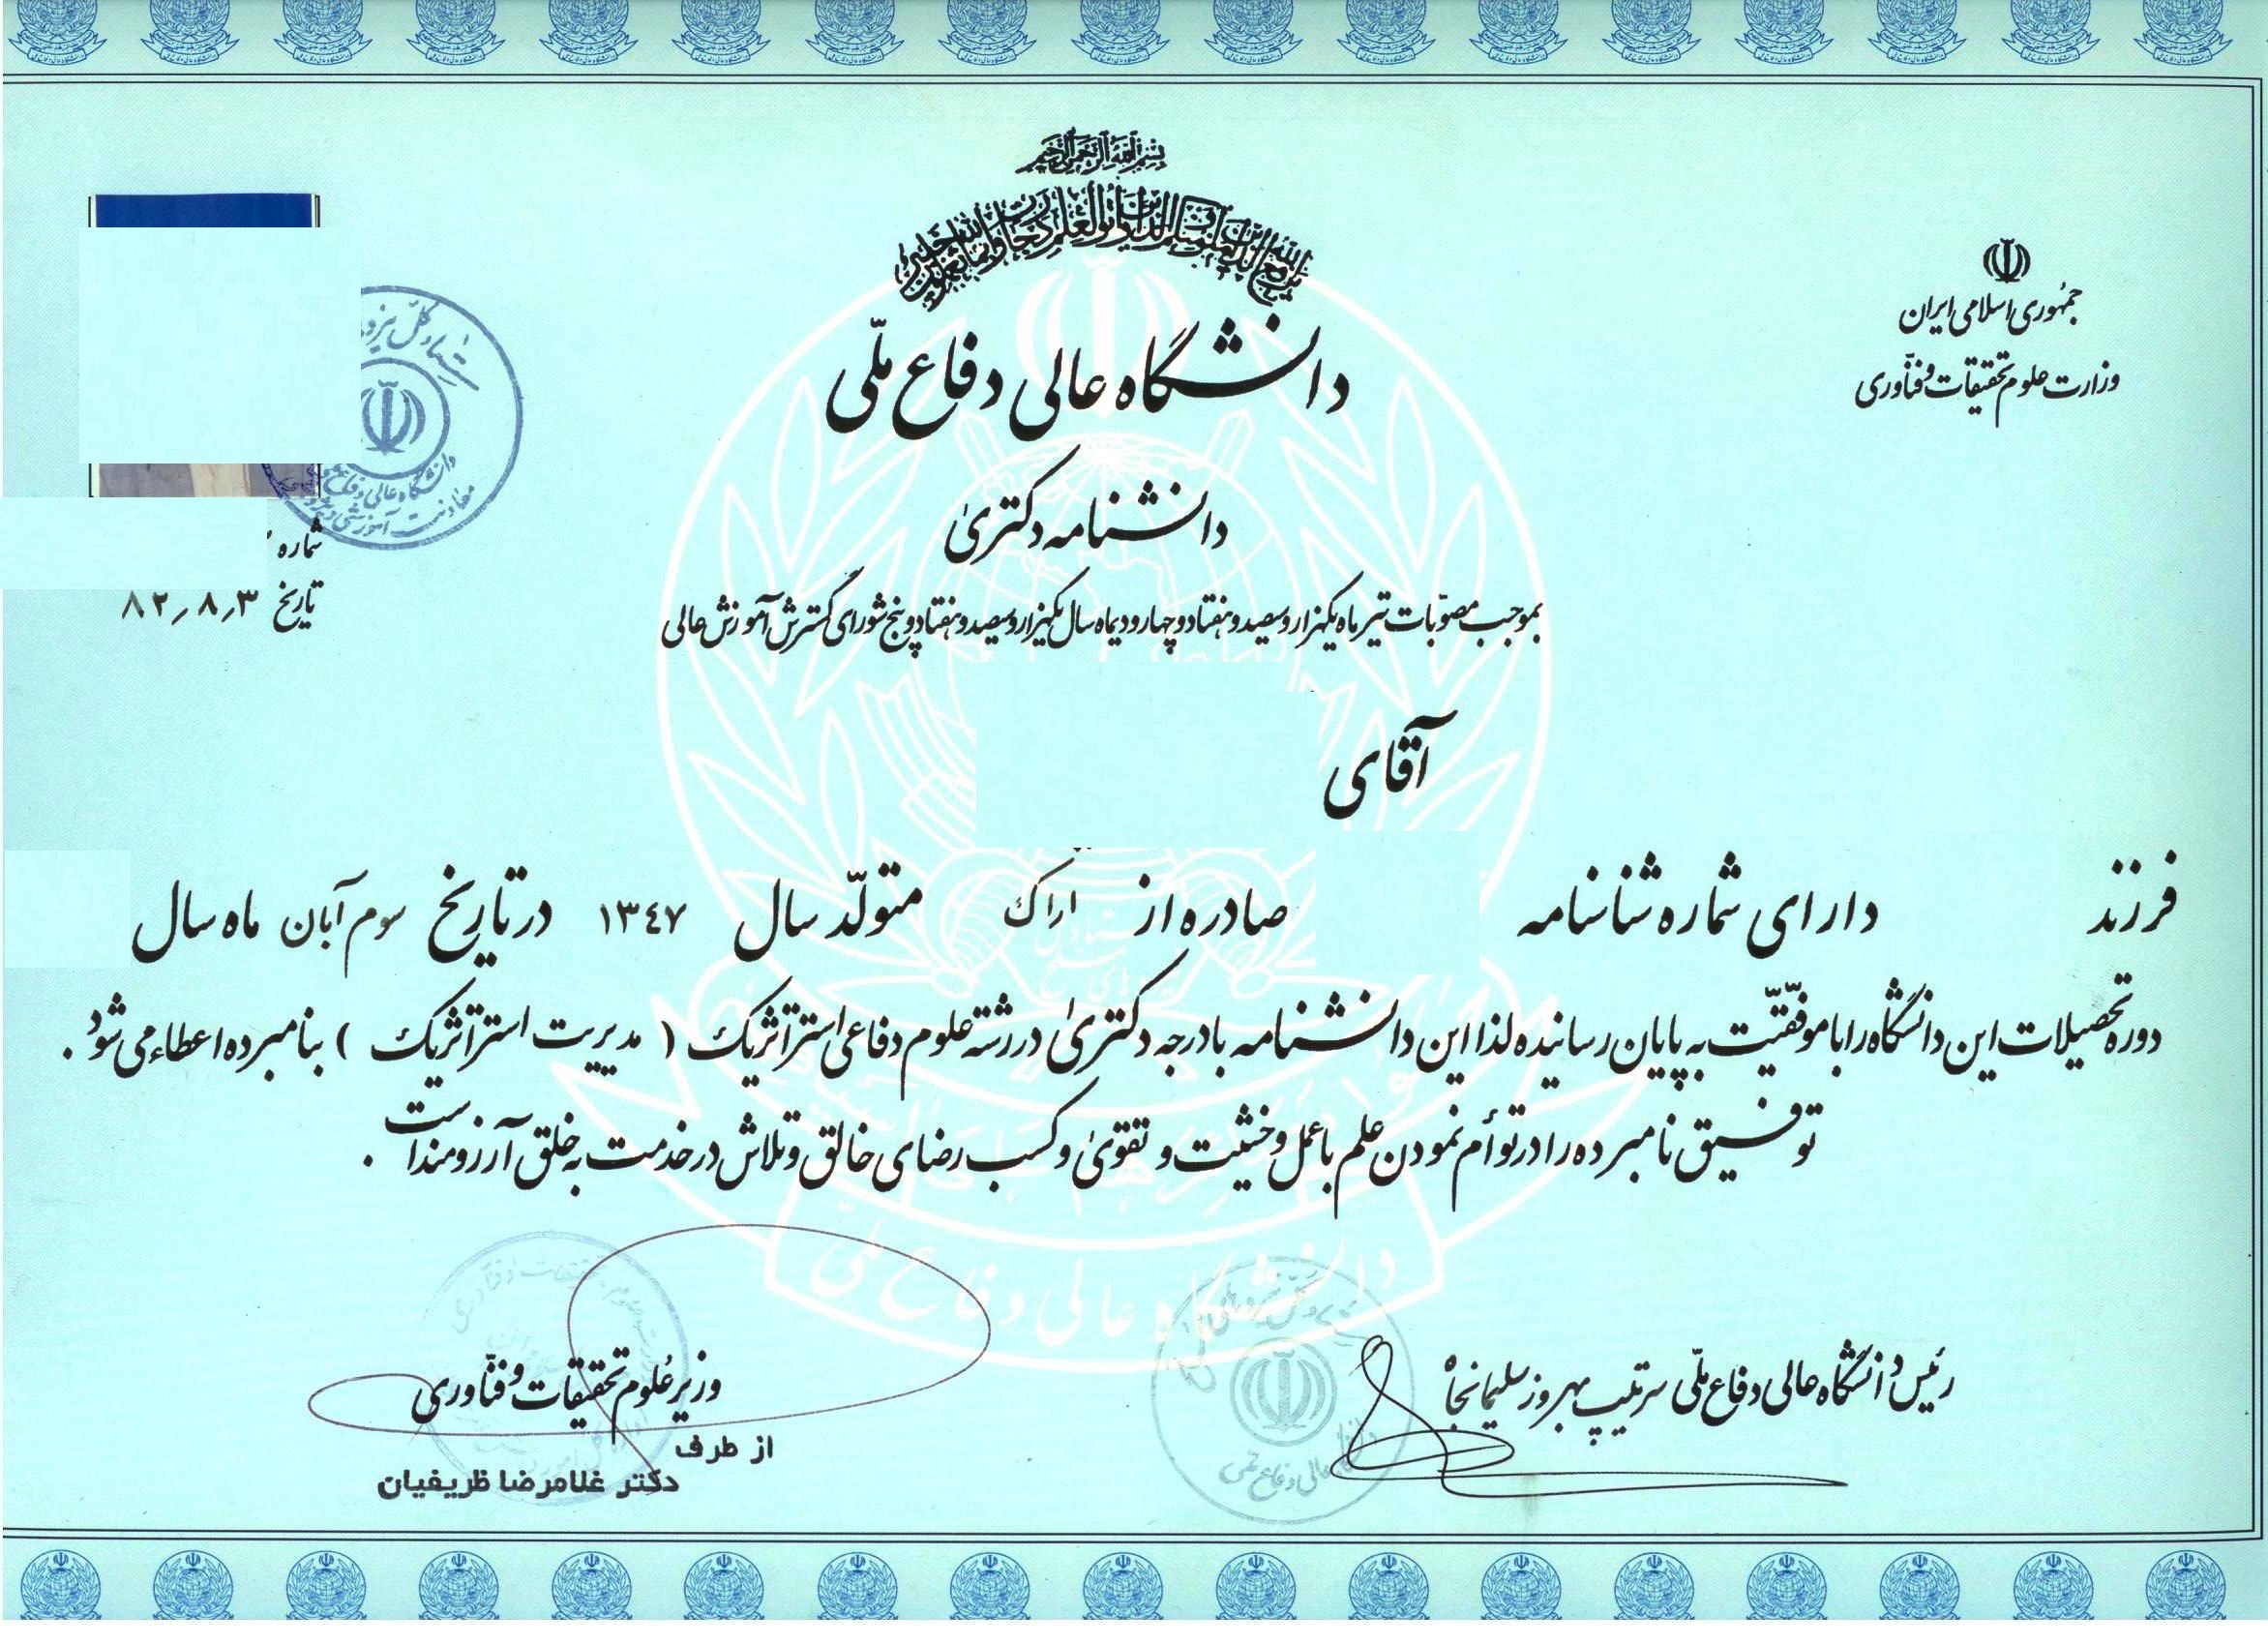 بسم الله الرحمن الرحیم
یرفع الله الذین آمنوا منکم والذین اوتوا العلم درجات والله بما تعملون خبیر
جمهوری اسلامی ایران
وزارت علوم تحقیقات و فنّاوری
دانشگاه عالی دفاع ملّی
دانشنامه دکتریٰ
شماره
تاریخ ۸۲٫۸٫۳
بموجب مصوّبات تیر ماه یکهزار و سیصد و هفتاد و چهار و دیماه سال یکهزار و سیصد و هفتاد و پنج شورای گسترش آموزش عالی
آقای
فرزند دارای شماره شناسنامه صادره از اراک متولّد سال ۱۳٤۷ در تاریخ سوم آبان ماه سال
دوره تحصیلات این دانشگاه را با موفّقیّت به پایان رسانیده لذا این دانشنامه با درجه دکتریٰ در رشته علوم دفاعی استراتژیک ( مدیریت استراتژیک ) بنامبرده اعطاء می شود .
توفیق نامبرده را در توأم نمودن علم با عمل و خشیت و تقویٰ و کسب رضای خالق و تلاش در خدمت به خلق آرزومند است .
رئیس دانشگاه عالی دفاع ملّی سرتیپ بهروز سلیمانجاه
وزیر علوم تحقیقات و فنّاوری
از طرف
دکتر غلامرضا ظریفیان
دانشگاه عالی دفاع ملی